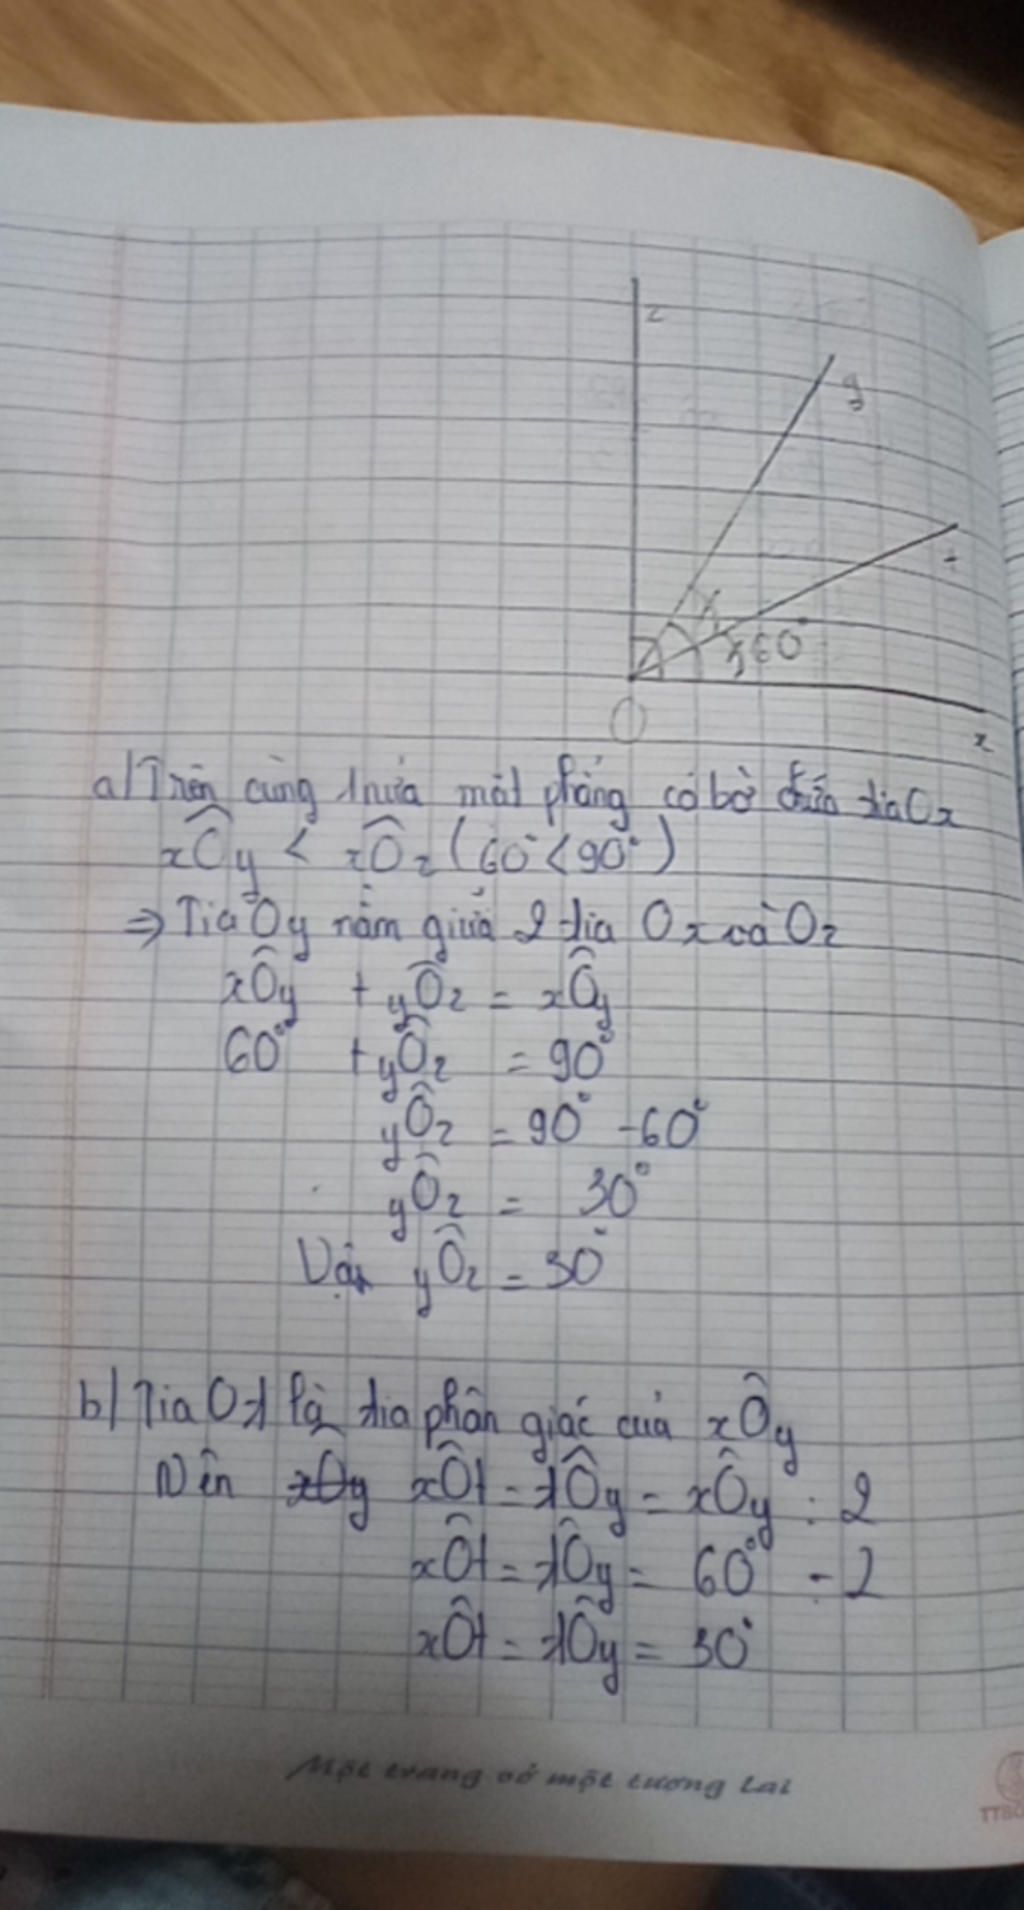 z
y
t
60°
O
x
a/ Trên cùng 1 nửa mặt phẳng có bờ chứa tia Ox
xÔy < xÔz (60° < 90°)
⇒ Tia Oy nằm giữa 2 tia Ox và Oz
xÔy + yÔz = xÔy
60° + yÔz = 90°
yÔz = 90° - 60°
yÔz = 30°
Vậy yÔz = 30°
b/ Tia Ot là tia phân giác của xÔy
Nên xÔt = tÔy = xÔy : 2
xÔt = tÔy = 60° : 2
xÔt = tÔy = 30°
Một trang vở một tương lai